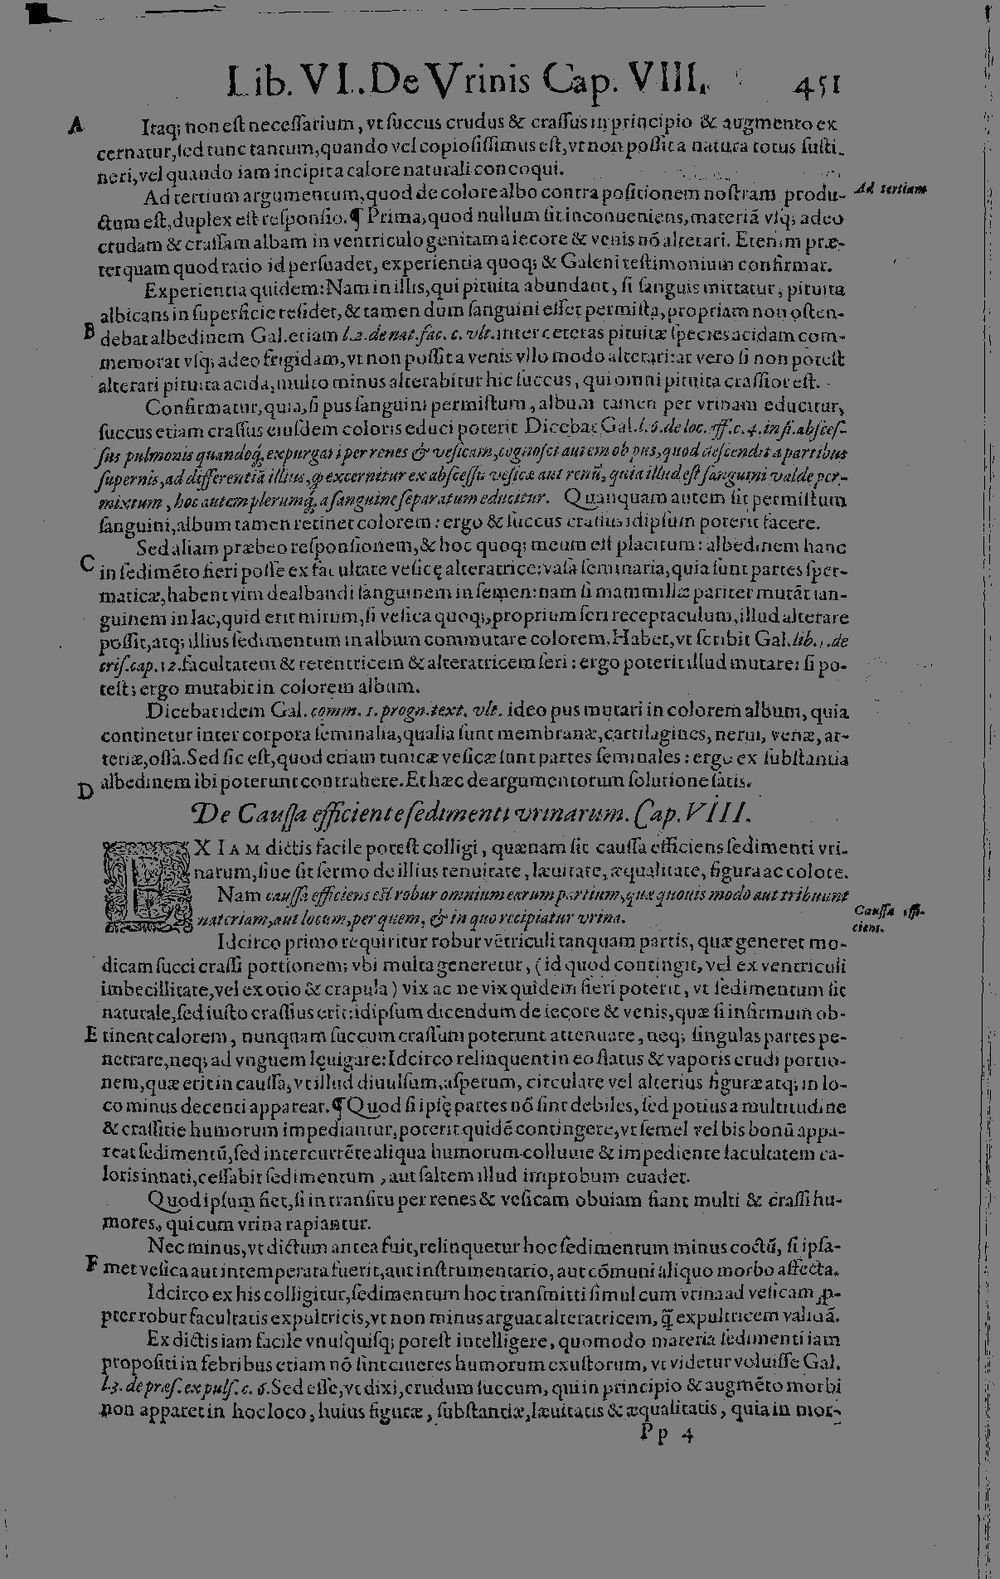 Lib. VI. De Vrinis Cap. VIII. 451
A Itaq; non est necessarium, vt succus crudus & crassus in principio & augmento ex
cernatur, sed tunc tantum, quando vel copiosissimus est, vt non possit a natura totus susti-
neri, vel quando iam incipit a calore naturali concoqui.
Ad tertium argumentum, quod de colore albo contra positionem nostram produ- Ad tertium
ctum est, duplex est responsio. ¶ Prima, quod nullum sit inconueniens, materiã vsq; adeo
crudam & crassam albam in ventriculo genitam a iecore & venis nõ alterari. Etenim præ-
terquam quod ratio id persuadet, experientia quoq; & Galeni testimonium confirmat.
Experientia quidem: Nam in illis, qui pituita abundant, si sanguis mittatur, pituita
albicans in superficie residet, & tamen dum sanguini esset permista, propriam non osten-
B debat albedinem Gal. etiam l. 2. de nat. fac. c. vlt. inter ceteras pituitæ species acidam com-
memorat vsq; adeo frigidam, vt non possit a venis vllo modo alterari: at vero si non potest
alterari pituita acida, multo minus alterabitur hic succus, qui omni pituita crassior est.
Confirmatur, quia, si pus sanguini permistum, album tamen per vrinam educitur,
succus etiam crassus eiusdem coloris educi poterit. Dicebat Gal. l. 6. de loc. aff. c. 4. in fi. absces-
sus pulmonis quandoq; expurgari per renes & vesicam, cognosci autem ob pus, quod descendit a partibus
supernis, ad differentiã illius, qd excernitur ex abscessu vesicæ aut renũ, quia illud est sanguini valde per-
mixtum, hoc autem plerumq; a sanguine separatum educitur. Quanquam autem sit permistum
sanguini, album tamen retinet colorem: ergo & succus crassus idipsum poterit facere.
Sed aliam præbeo responsionem, & hoc quoq; meum est placitum: albedinem hanc
C in sedimẽto fieri posse ex facultate vesicę alteratrice: vasa seminaria, quia sunt partes sper-
maticæ, habent vim dealbandi sanguinem in semen: nam si mammillæ pariter mutãt san-
guinem in lac, quid erit mirum, si vesica quoq;, proprium seri receptaculum, illud alterare
possit, atq; illius sedimentum in album commutare colorem. Habet, vt scribit Gal. lib. 1. de
cris. cap. 12. facultatem & retentricem & alteratricem seri: ergo poterit illud mutare: si po-
test; ergo mutabit in colorem album.
Dicebat idem Gal. comm. 1. progn. text. vlt. ideo pus mutari in colorem album, quia
continetur inter corpora seminalia, qualia sunt membranæ, cartilagines, nerui, venæ, ar-
teriæ, ossa. Sed sic est, quod etiam tunicæ vesicæ sunt partes seminales: ergo ex substantia
D albedinem ibi poterunt contrahere. Et hæc de argumentorum solutione satis.
De Caussa efficiente sedimenti vrinarum. Cap. VIII.
EX IAM dictis facile potest colligi, quænam sit caussa efficiens sedimenti vri-
narum, siue sit sermo de illius tenuitate, læuitate, æqualitate, figura ac colore.
Nam caussa efficiens est robur omnium earum partium, quæ quouis modo aut tribuunt
materiam, aut locum, per quem, & in quo recipiatur vrina. Caussa effi-
ciens.
Idcirco primo requiritur robur vẽtriculi tanquam partis, quæ generet mo-
dicam succi crassi portionem; vbi multa generetur, (id quod contingit, vel ex ventriculi
imbecillitate, vel ex otio & crapula) vix ac ne vix quidem fieri poterit, vt sedimentum sit
naturale, sed iusto crassius erit: idipsum dicendum de iecore & venis, quæ si infirmum ob-
E tinent calorem, nunquam succum crassum poterunt attenuare, neq; singulas partes pe-
netrare, neq; ad vnguem lęuigare: Idcirco relinquent in eo flatus & vaporis crudi portio-
nem, quæ erit in caussa, vt illud diuulsum, asperum, circulare vel alterius figuræ atq; in lo-
co minus decenti appareat. ¶ Quod si ipsę partes nõ sint debiles, sed potius a multitudine
& crassitie humorum impediantur, poterit quidẽ contingere, vt semel vel bis bonũ appa-
reat sedimentũ, sed intercurrẽte aliqua humorum colluuie & impediente facultatem ca-
loris innati, cessabit sedimentum, aut saltem illud improbum euadet.
Quod ipsum fiet, si in transitu per renes & vesicam obuiam fiant multi & crassi hu-
mores, qui cum vrina rapiantur.
Nec minus, vt dictum antea fuit, relinquetur hoc sedimentum minus coctũ, si ipsa-
F met vesica aut intemperata fuerit, aut instrumentario, aut cõmuni aliquo morbo affecta.
Idcirco ex his colligitur, sedimentum hoc transmitti simul cum vrina ad vesicam p-
pter robur facultatis expultricis, vt non minus arguat alteratricem, q̃ expultricem validã.
Ex dictis iam facile vnusquisq; potest intelligere, quomodo materia sedimenti iam
propositi in febribus etiam nõ sint cineres humorum exustorum, vt videtur voluisse Gal.
l. 3. de præs. ex puls. c. 6. Sed esse, vt dixi, crudum succum, qui in principio & augmẽto morbi
non apparet in hoc loco, huius figuræ, substantiæ, læuitatis & æqualitatis, quia in mor-
Pp 4